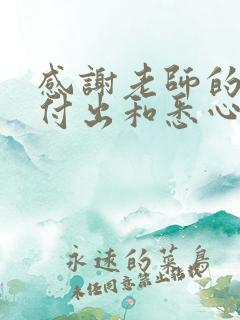 感謝老師的
付出和悉心
永遠的菜鳥
未任同意禁止拈找